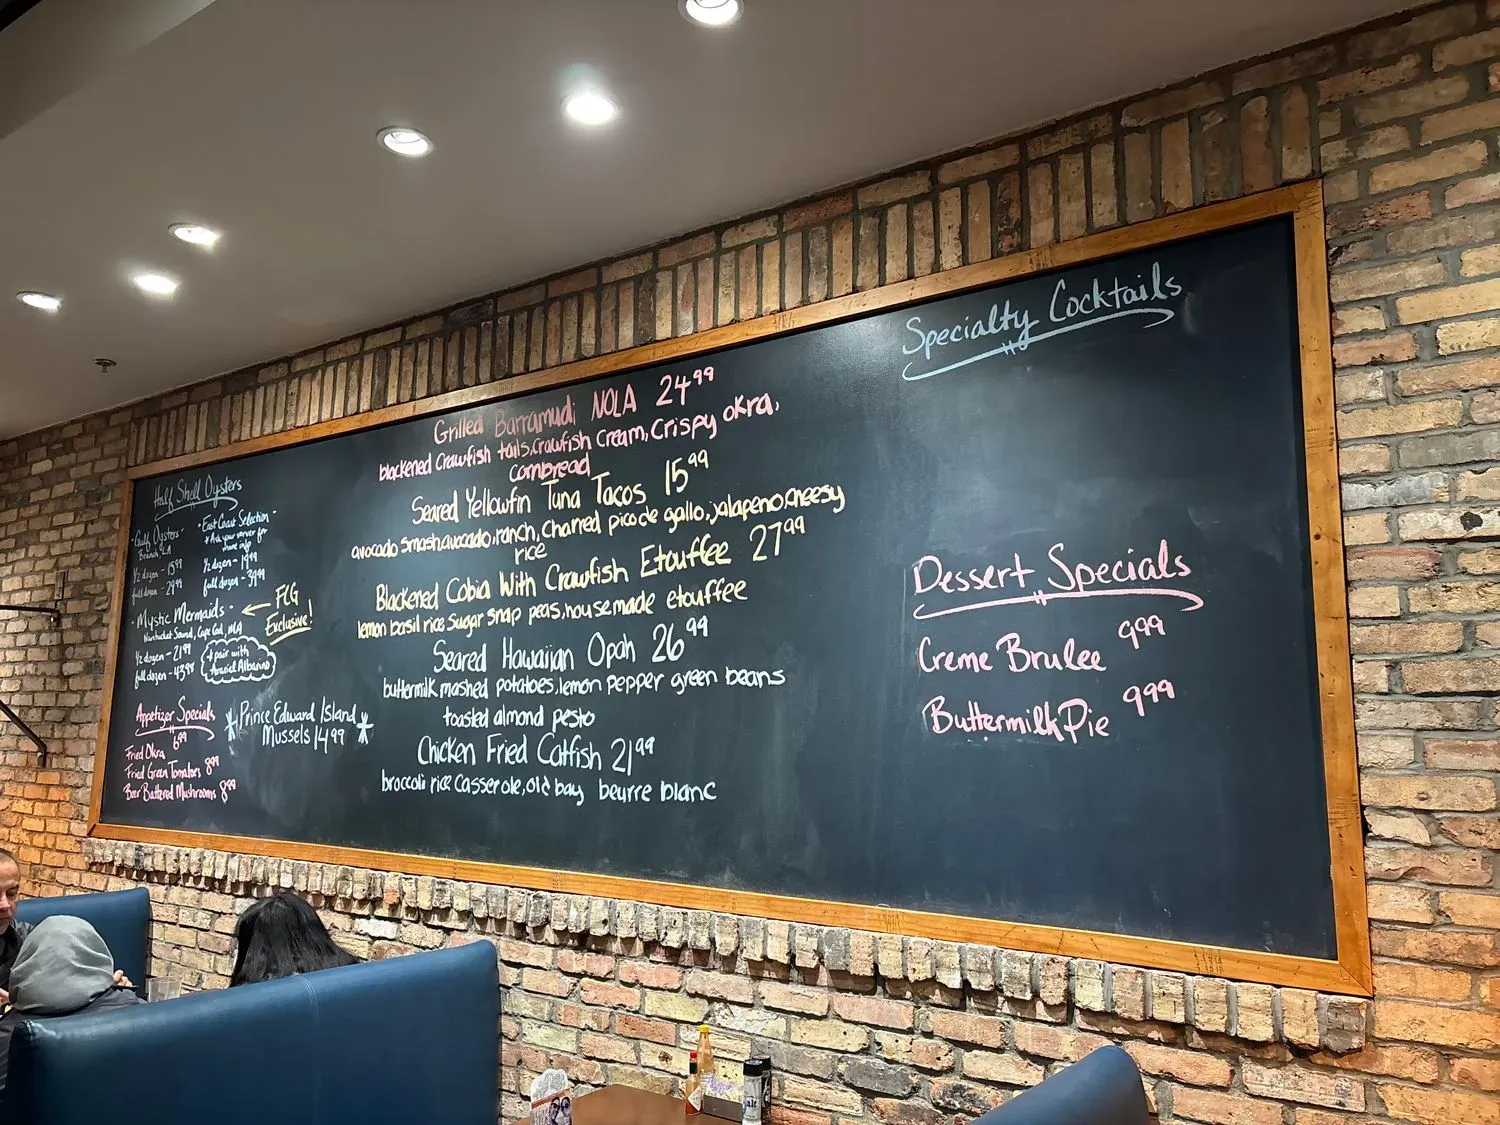 Half Shell Oysters
- Gulf Oysters -
Branch, LA
1/2 dozen - 15 99
full dozen - 29 99
- East Coast Selection -
* Ask your server for
more info
1/2 dozen - 19 99
full dozen - 39 99
- Mystic Mermaids -
Nantucket Sound, Cape Cod, MA
1/2 dozen - 21 99
full dozen - 43 99
FLG
Exclusive!
* pair with
Albarino
Appetizer Specials
Fried Okra 6 99
Fried Green Tomatoes 8 99
Beer Battered Mushrooms 8 99
Prince Edward Island
Mussels 14 99
Grilled Barramudi NOLA 24 99
blackened Crawfish tails, Crawfish Cream, Crispy okra,
cornbread
Seared Yellowfin Tuna Tacos 15 99
avocado smash, avocado, ranch, Charred pico de gallo, jalapeno, cheesy
rice
Blackened Cobia With Crawfish Etouffee 27 99
lemon basil rice sugar snap peas, housemade etouffee
Seared Hawaiian Opah 26 99
buttermilk mashed potatoes, lemon pepper green beans
toasted almond pesto
Chicken Fried Catfish 21 99
broccoli rice Casserole, old bay beurre blanc
Specialty Cocktails
Dessert Specials
Creme Brulee 9 99
Buttermilk Pie 9 99